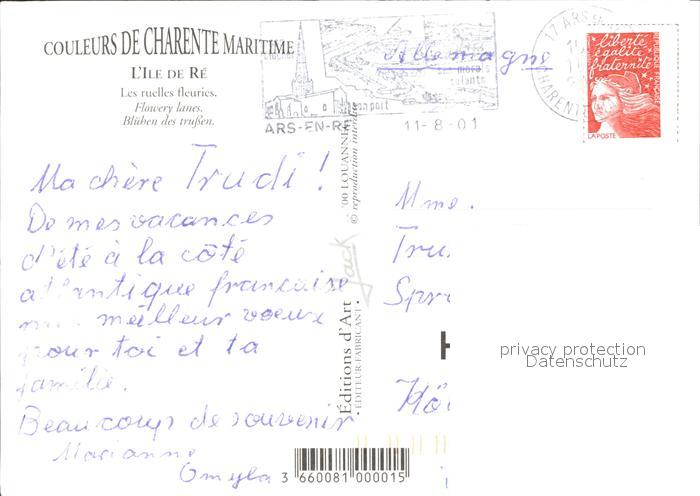 COULEURS DE CHARENTE MARITIME
L'ILE DE RÉ
Les ruelles fleuries.
Flowery lanes.
Blühen des trußen.
Ma chère Trudi !
De mes vacances
d'été à la côté
atlantique française
meilleur voeux
pour toi et ta
famille.
Beaucoup de souvenir
Marianne
3 660081 000015
Éditions d'Art Jack
• ÉDITEUR-FABRICANT •
'00 LOUANNEC
© reproduction interdite
ARS-EN-RÉ 11-8-01
son port
Allemagne
17 ARS
CHARENTE
liberté
égalité
fraternité
RÉPUBLIQUE FRANÇAISE
LA POSTE
Mme.
privacy protection
Datenschutz